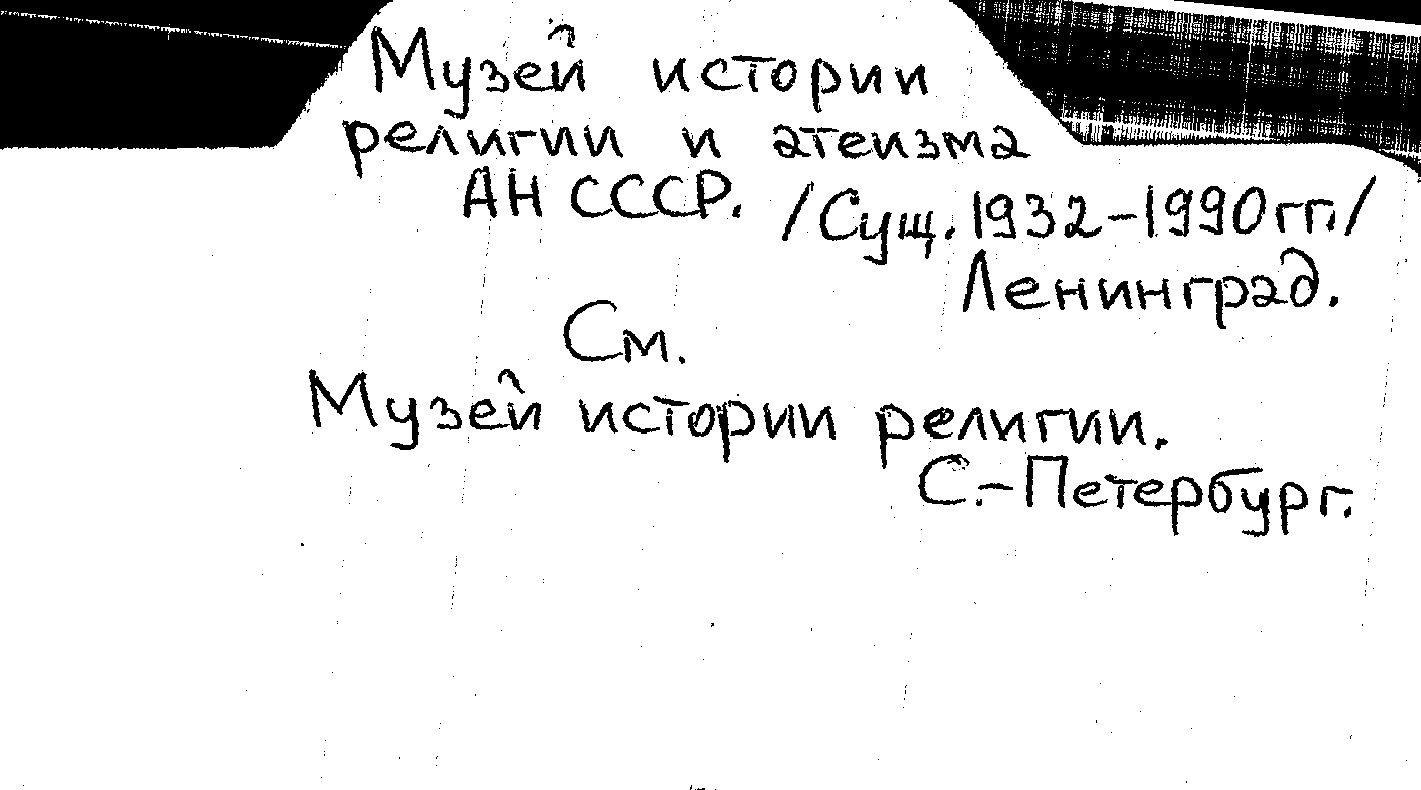 Музей истории
религии и атеизма
АН СССР. /Сущ. 1932-1990 гг./
Ленинград.
См.
Музей истории религии.
С.-Петербург.